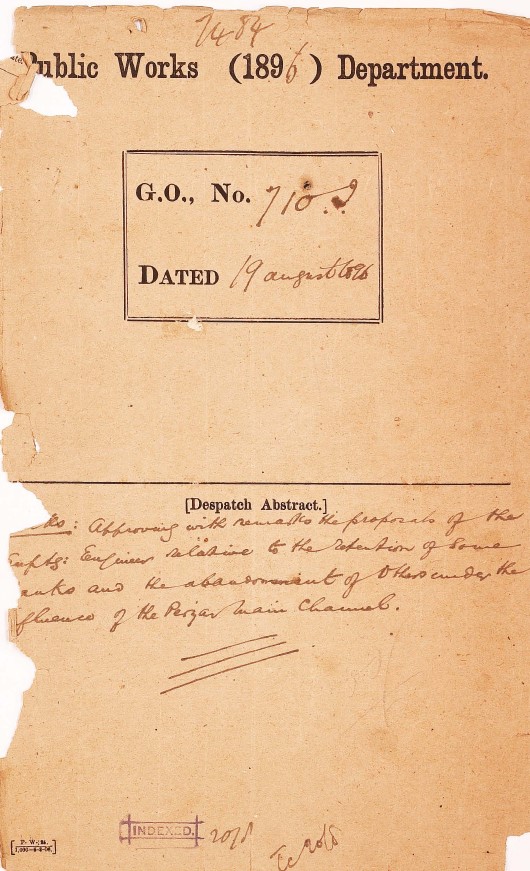 7484
Public Works (1896) Department.
G.O., No. 710 I.
DATED 19 august 1896
[Despatch Abstract.]
: Approving with remarks the proposals of the
Engineer relative to the retention of some
anks and the abandonment of others under the
fluence of the Periyar Main Channel.
INDEXED. 20/8
20/8
[P. W.-24.